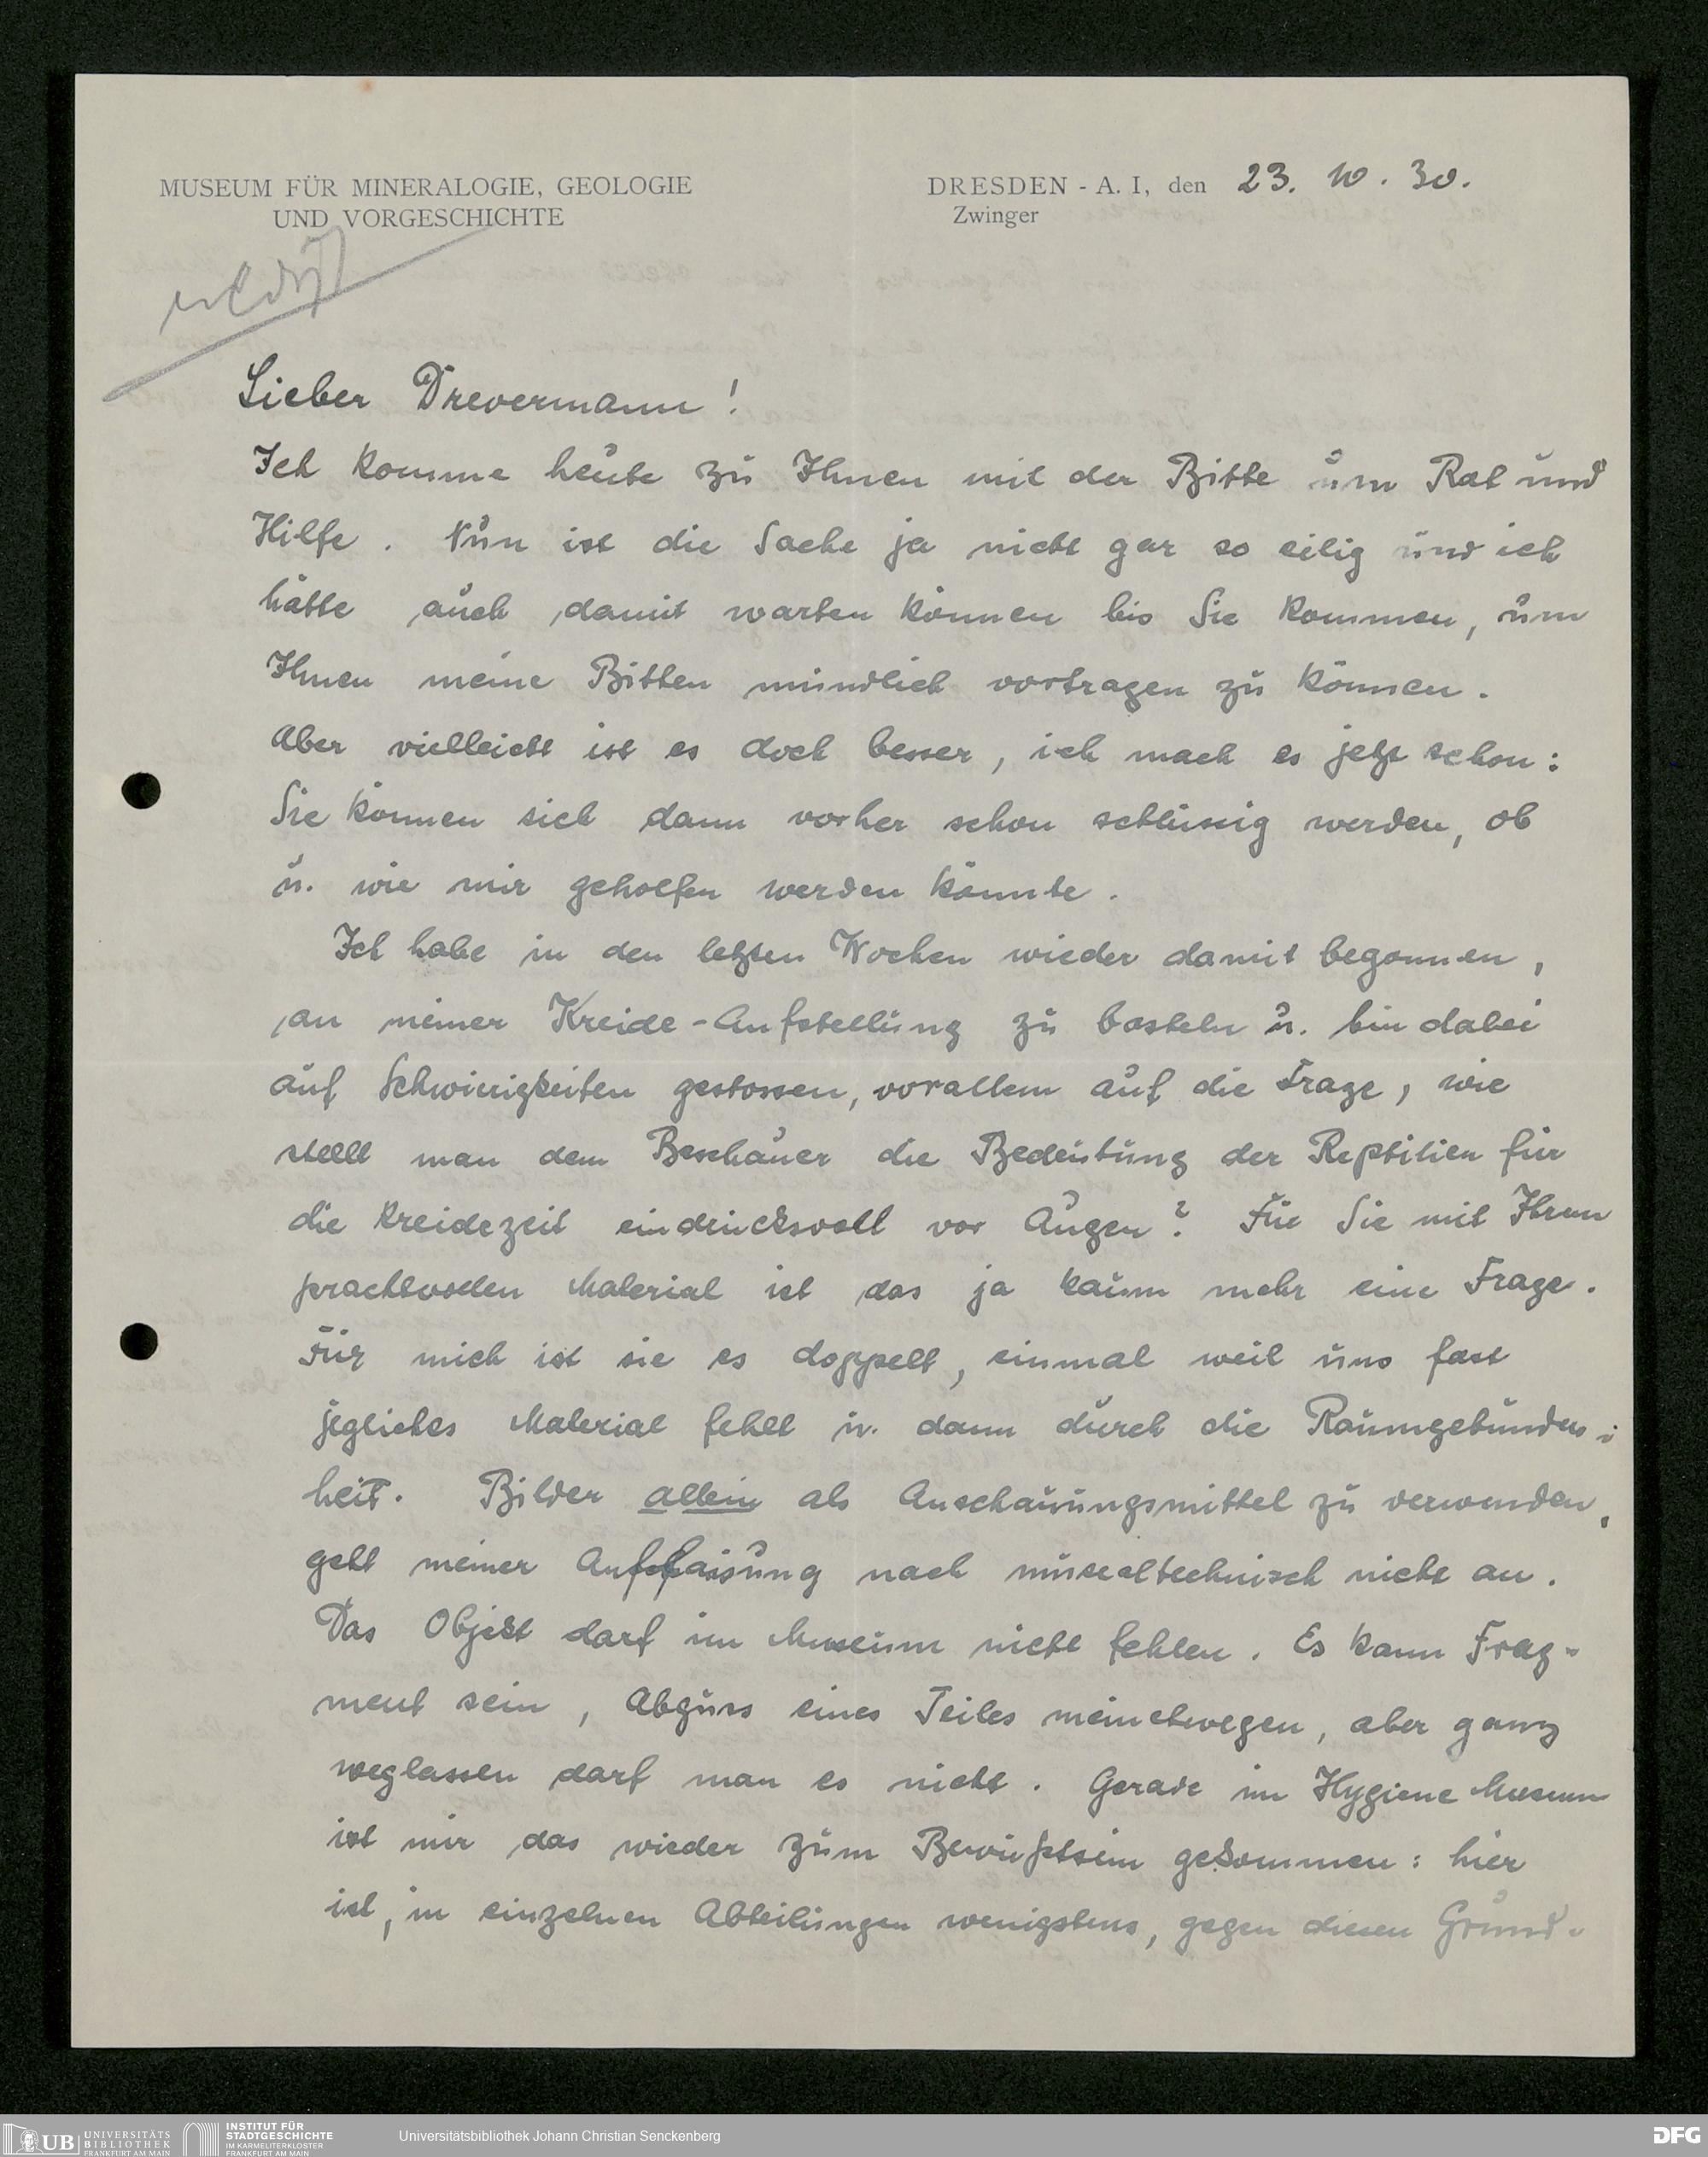 MUSEUM FÜR MINERALOGIE, GEOLOGIE
UND VORGESCHICHTE
DRESDEN - A. I, den 23. 10. 30.
Zwinger
erledigt
Lieber Drevermann!
Ich komme heute zu Ihnen mit der Bitte um Rat und
Hilfe. Nun ist die Sache ja nicht gar so eilig und ich
hätte auch damit warten können bis Sie kommen, um
Ihnen meine Bitten mündlich vortragen zu können.
Aber vielleicht ist es doch besser, ich mach es jetzt schon:
Sie können sich dann vorher schon schlüssig werden, ob
u. wie mir geholfen werden könnte.
Ich habe in den letzten Wochen wieder damit begonnen,
an meiner Kreide-Aufstellung zu basteln u. bin dabei
auf Schwierigkeiten gestossen, vorallem auf die Frage, wie
stellt man dem Beschauer die Bedeutung der Reptilien für
die Kreidezeit eindrucksvoll vor Augen? Für Sie mit Ihrem
prachtvollen Material ist das ja kaum mehr eine Frage.
Für mich ist sie es doppelt, einmal weil uns fast
jegliches Material fehlt u. dann durch die Raumgebunden-
heit. Bilder allein als Anschauungsmittel zu verwenden,
geht meiner Auffassung nach museeltechnisch nicht an.
Das Objekt darf im Museum nicht fehlen. Es kann Frag-
ment sein, Abguss eines Teiles meinetwegen, aber ganz
weglassen darf man es nicht. Gerade im Hygiene Museum
ist mir das wieder zum Bewußtsein gekommen: hier
ist, in einzelnen Abteilungen wenigstens, gegen diesen Grund-
UB UNIVERSITÄTS
BIBLIOTHEK
FRANKFURT AM MAIN
INSTITUT FÜR
STADTGESCHICHTE
IM KARMELITERKLOSTER
FRANKFURT AM MAIN
Universitätsbibliothek Johann Christian Senckenberg
DFG